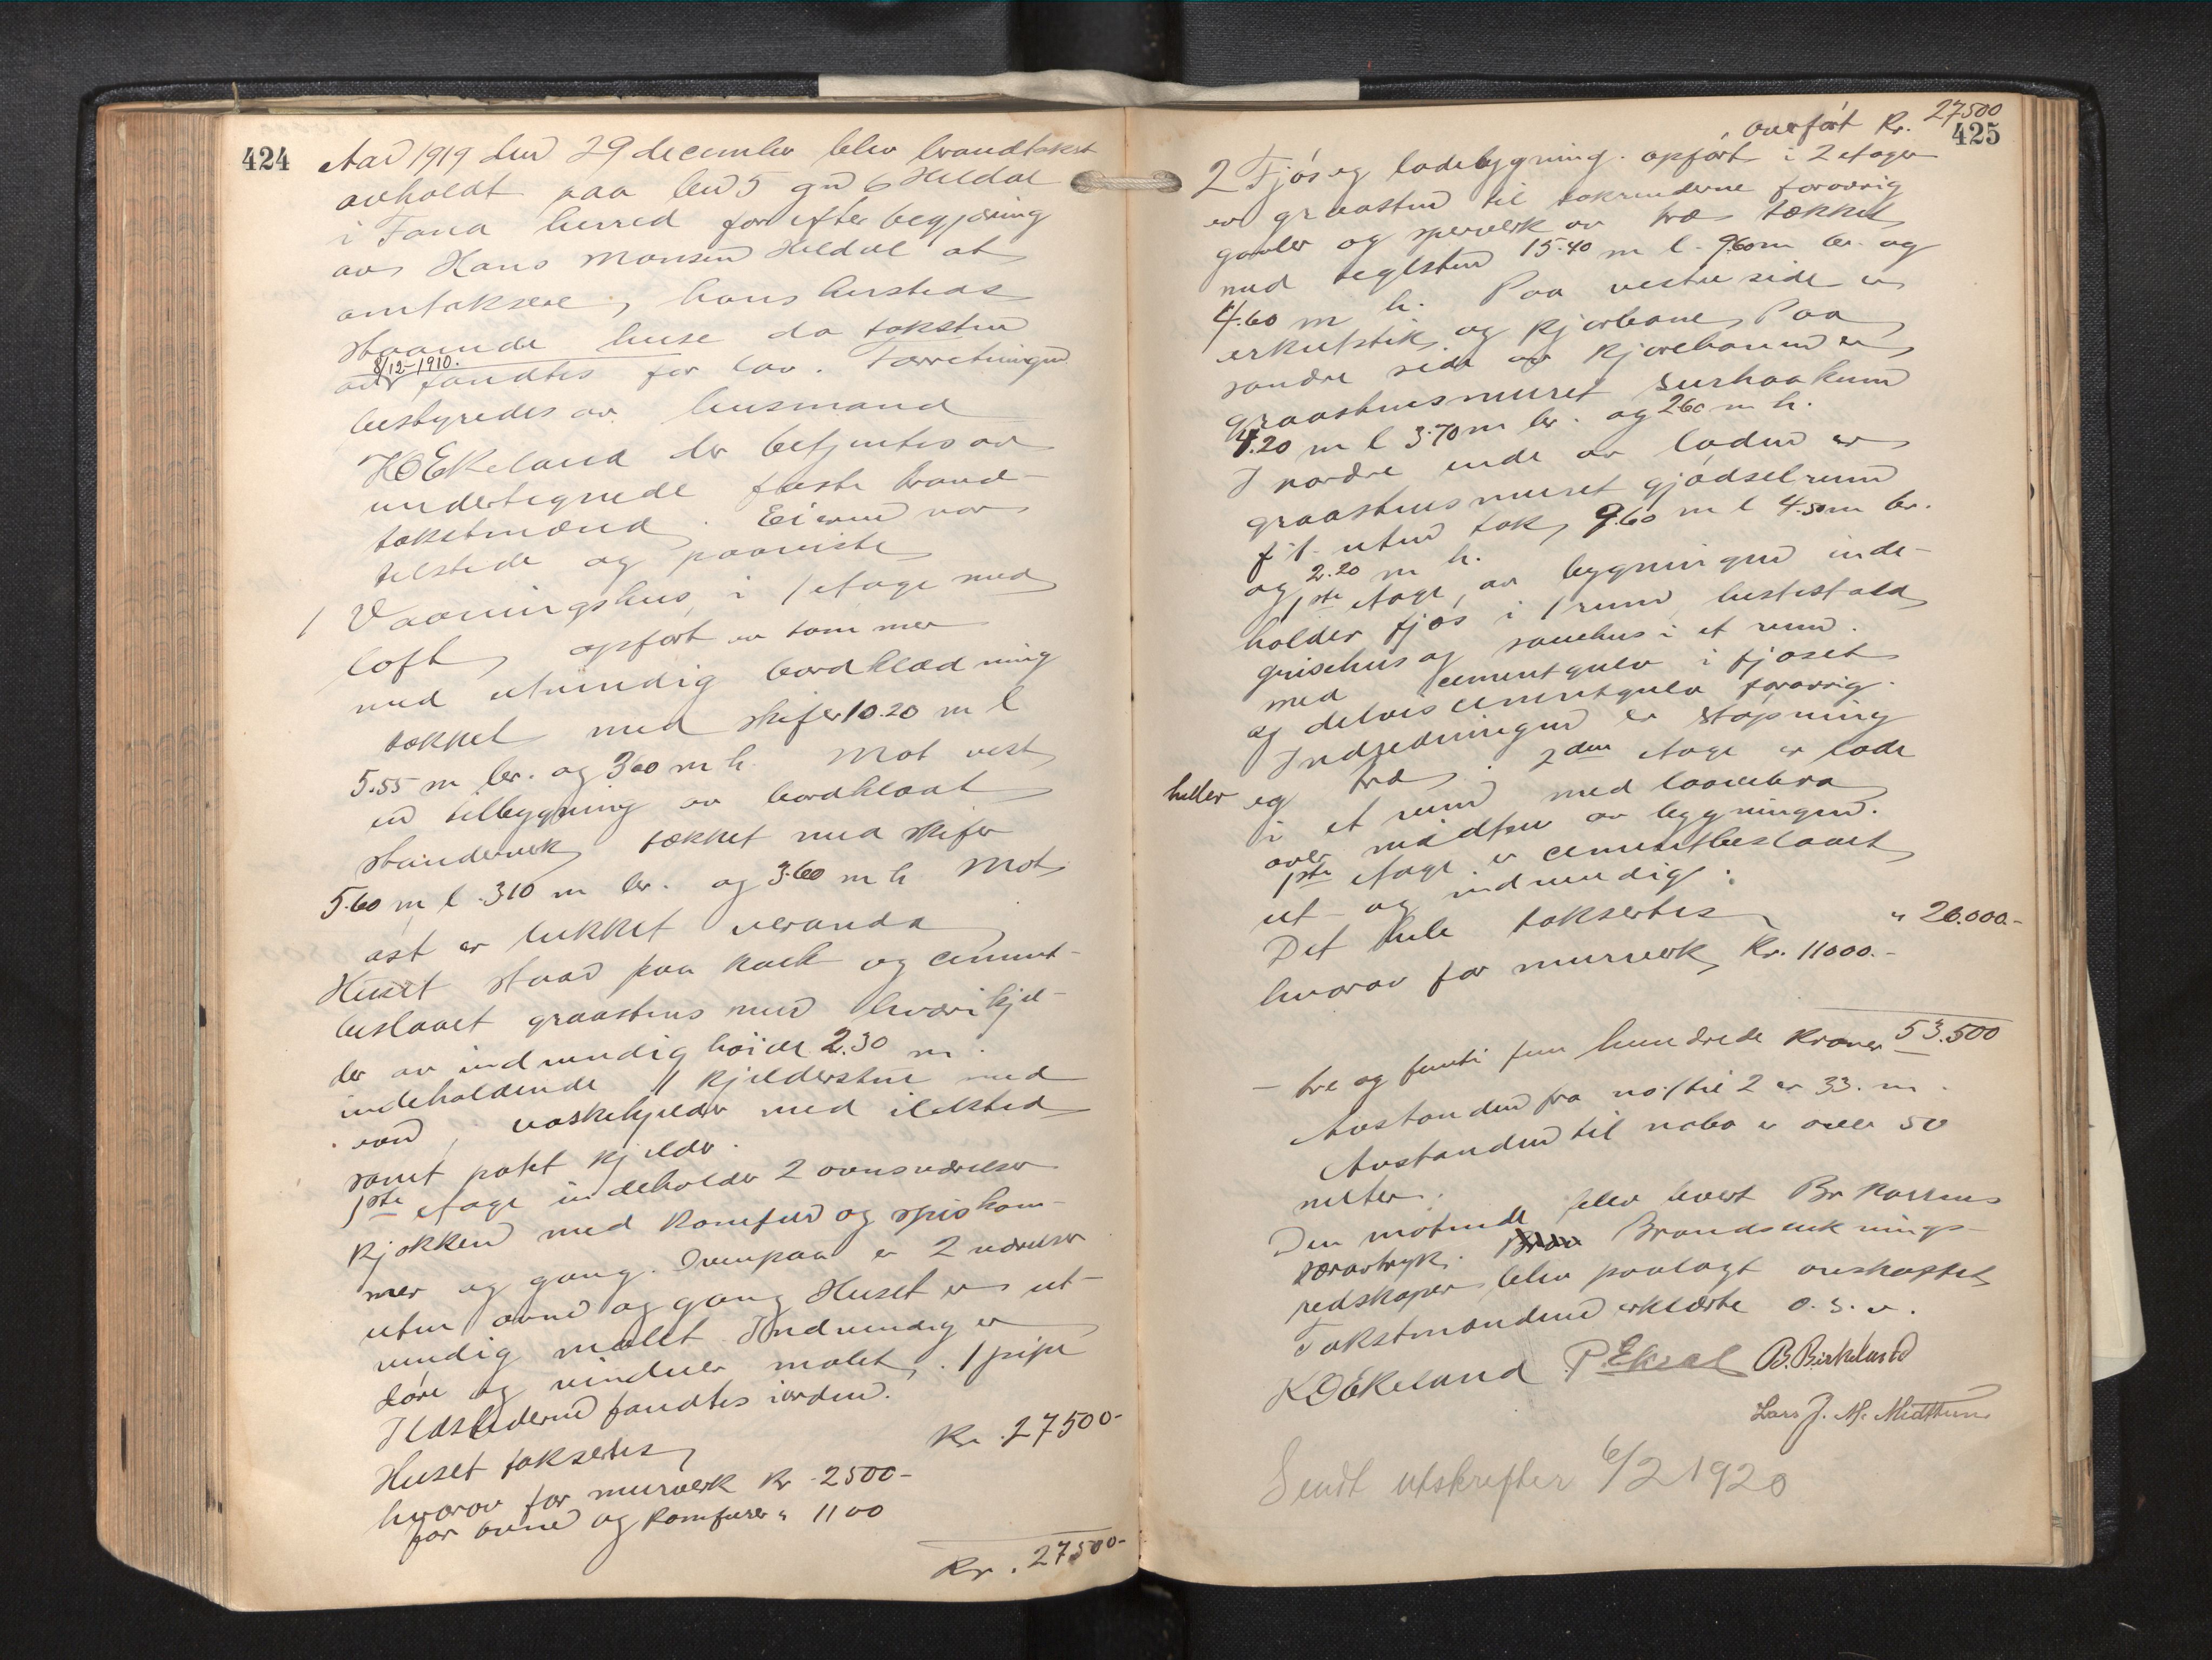 424
Aar 1919 den 29 december blev brandtakst
avholdt paa br 5 gn 6 Hildal
i Fana herred for efter begjæring
av Hans Monsen Hildal at
omtaksere, hans hersteds
staaende huse da taksten
av 8/12-1910. fandtes for lav. Forretningen
bestyredes av lensmand
K O Ekeland der betjentes av
undertegnede faste brand-
takstmænd. Eieren var
tilstede og paaviste
1 Vaaningshus i 1 etage med
loft, opført av tømmer
med utvendig bordklædning
tækket med skifer 10.20 m l
5.55 m br. og 3.60 m h. Mot vest
en tilbygning av bordklædt
standerverk, tækket med skifer
5.60 m l. 3.10 m br. og 3.60 m h Mot
øst er lukket veranda
Huset staar paa kalk og cement-
beslaaet graastens mur hvori kjel-
der av indvendig høide 2.30 m.
indeholdende 1 kjelderstue med
ovn, vaskekjelder med ildsted
samt potet kjelder.
1ste etage indeholder 2 ovnsværelser
kjøkken med komfur og spiskam-
mer og gang. Ovenpaa er 2 værelser
uten ovne og gang Huset er ut-
vendig malet. Indvendig er
døre og vinduer malet, 1 pipe
Ildstederne fandtes iorden.
Huset taksertes Kr. 27500-
hvorav for murverk Kr. 2500-
for ovne og komfurer " 1100
Kr. 27500-
425
overført Kr. 27500
2 Fjøs og ladebygning. opført i 2 etager
av graasten til takrenderne forøvrig
gavler og sperverk av træ tækket
med teglsten 15.40 m l. 9.60 m br. og
4.60 m h. Paa vestre side er
og kjørebane, Paa
søndre side av kjørebanen er
graastensmuret surhaakum
4.20 m l 3.70 m br. og 2.60 m h.
I nordre ende av laden er
graastensmuret gjødselrum
f.t. uten tak, 9.60 m l 4.50 m br.
og 2.20 m h.
1ste etage, av bygningen inde-
holder fjøs i 1 rum hestestald
grisehus og sauehus i et rum.
med cementgulv i fjøset
og delvis cementgulv forøvrig.
Indredningen er støpning
og træ, 2den etage er lade
i et rum med laavebro
over midten av bygningen.
1ste etage er cementbeslaaet
ut- og indvendig.
Det hele taksertes " 26.000.-
hvorav for murverk, Kr. 11000.-
- tre og femti fem hundrede Kroner 53.500
Avstanden fra no 1 til 2 er 33. m.
Avstanden til nabo er over 50
meter.
Den møtende blev levert Br kassens
særavtryk. Brandsluknings-
redskaper blev paalagt anskaffet
Takstmændene erklærte o. s. v.
K O Ekeland P. Ekeal B. Birkeland
Lars J. M. Midttun
Sendt utskrifter 6/2 1920